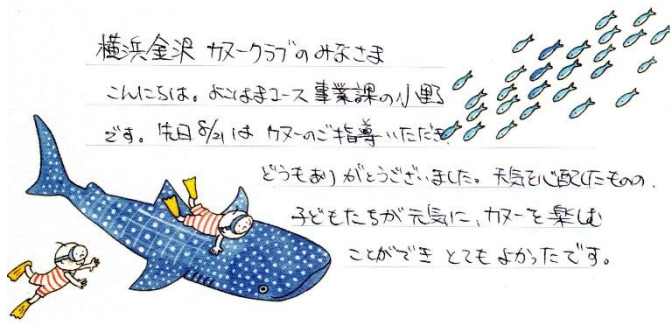 横浜金沢 カヌークラブのみなさま
こんにちは。よこはまユース 事業課の小野
です。先日 8/21は カヌーのご指導いただき
どうもありがとうございました。天気を心配したものの、
子どもたちが元気に、カヌーを楽しむ
ことができ とてもよかったです。